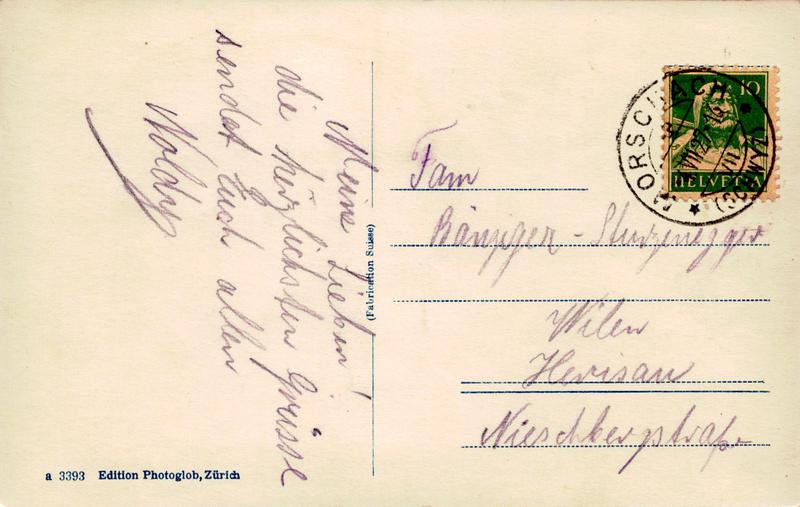 Meine Lieben!
die herzlichsten Grüsse
sendet Euch allen
Noldy
(Fabrication Suisse)
a 3393 Edition Photoglob, Zürich
10
HELVETIA
MORSCHACH
(SCHWYZ)
Fam
Bänziger-Sturzenegger
Wilen
Herisau
Nieschbergstraße